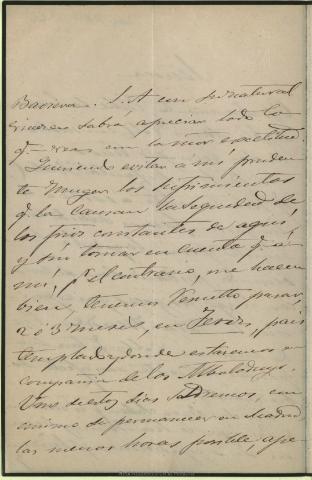 Baviera. S. A. con su natural
sabrá apreciar todo lo
q. con la mor exactitud.
Queriendo evitar a mi pruden-
te muger los sufrimientos
q. la causan la sequedad de
los frios constantes de aqui,
y sin tomar en cuenta q. a
mi, p.r el contrario, me hacen
bien, tenemos resuelto pasar
2 ó 3 meses, en Jerez, pais
templado y donde estaremos en
compañia de los
Uno de estos dias saldremos, con
animo de permanecer en Madrid
las menos horas posible, ape-